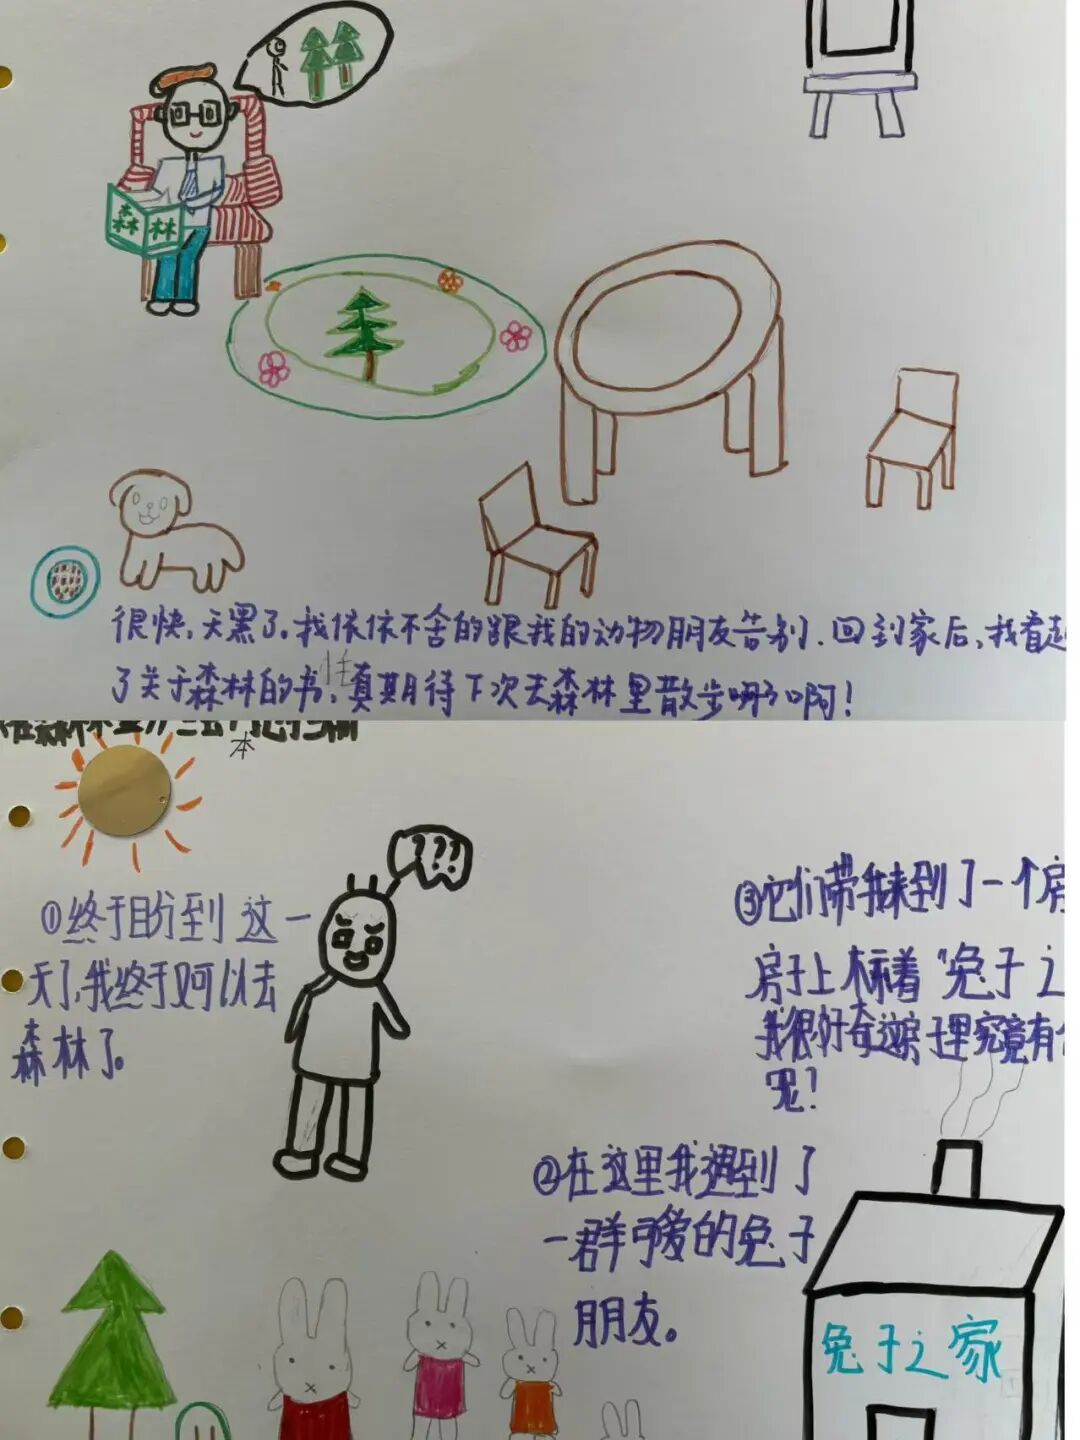 森林
很快,天黑了。我依依不舍的跟我的动物朋友告别.回到家后,我看起
了关于森林的书,真期待下次去森林里散步啊!
本
???
①终于盼到这一
天了,我终于可以去
森林了。
②在这里我遇到了
一群可爱的兔子
朋友。
③它们带我来到了一个房
房子上标着“兔子之
我很好奇这房子里究竟有
呢?
兔子之家